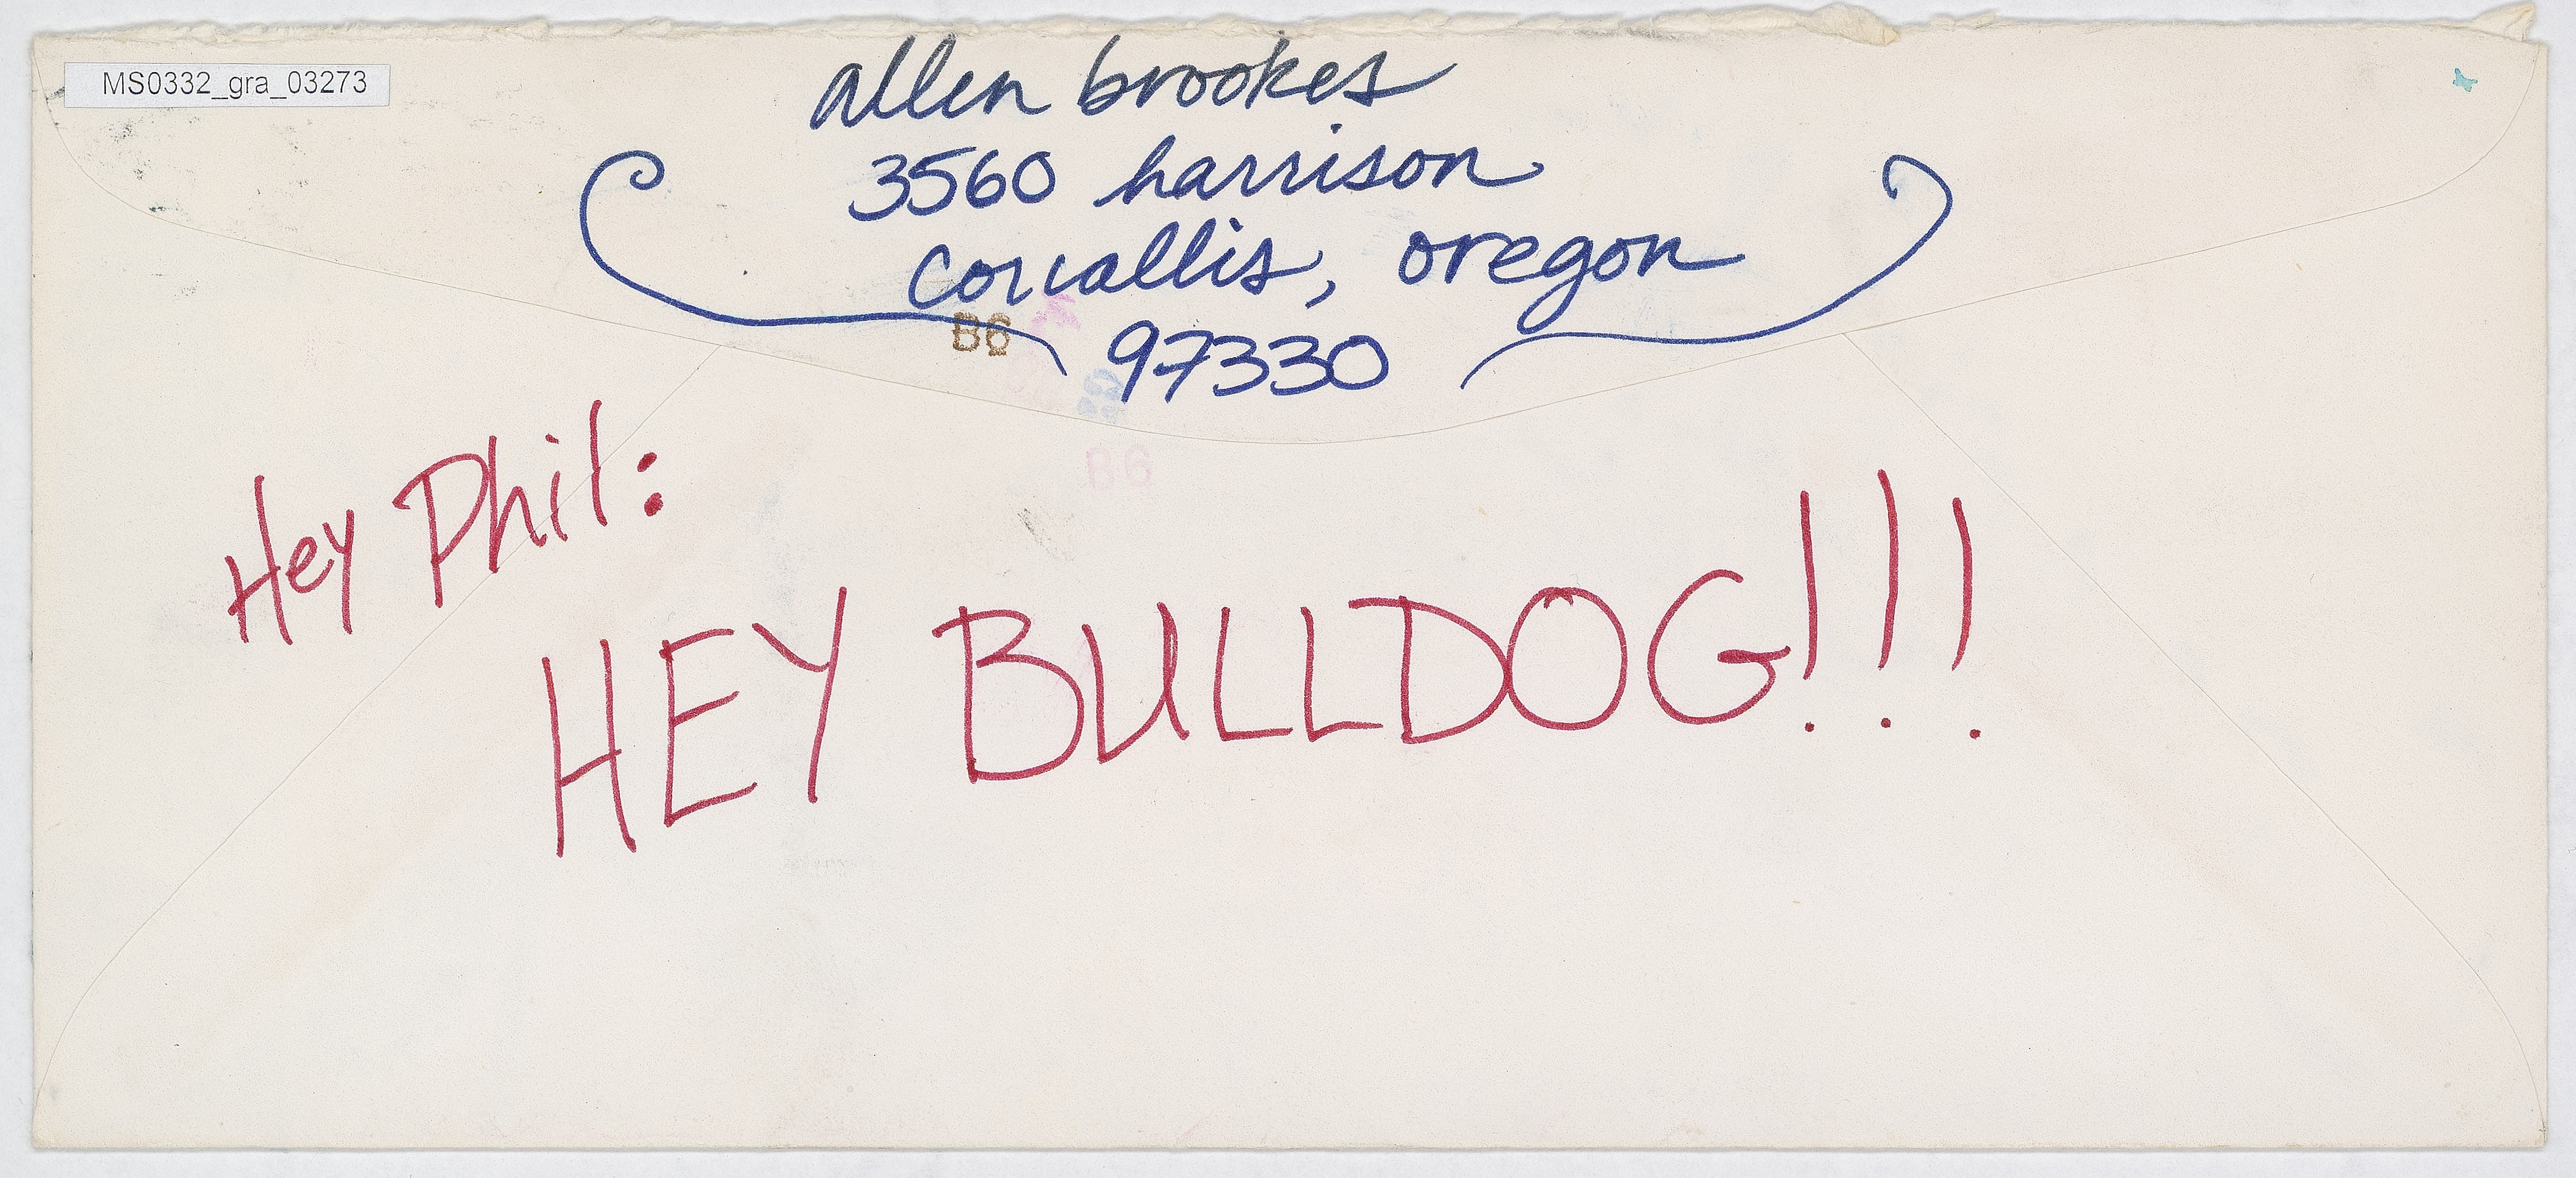 MS0332_gra_03273
allen brookes
3560 harrison
corvallis, oregon
B6
97330
B6
Hey Phil:
HEY BULLDOG!!!